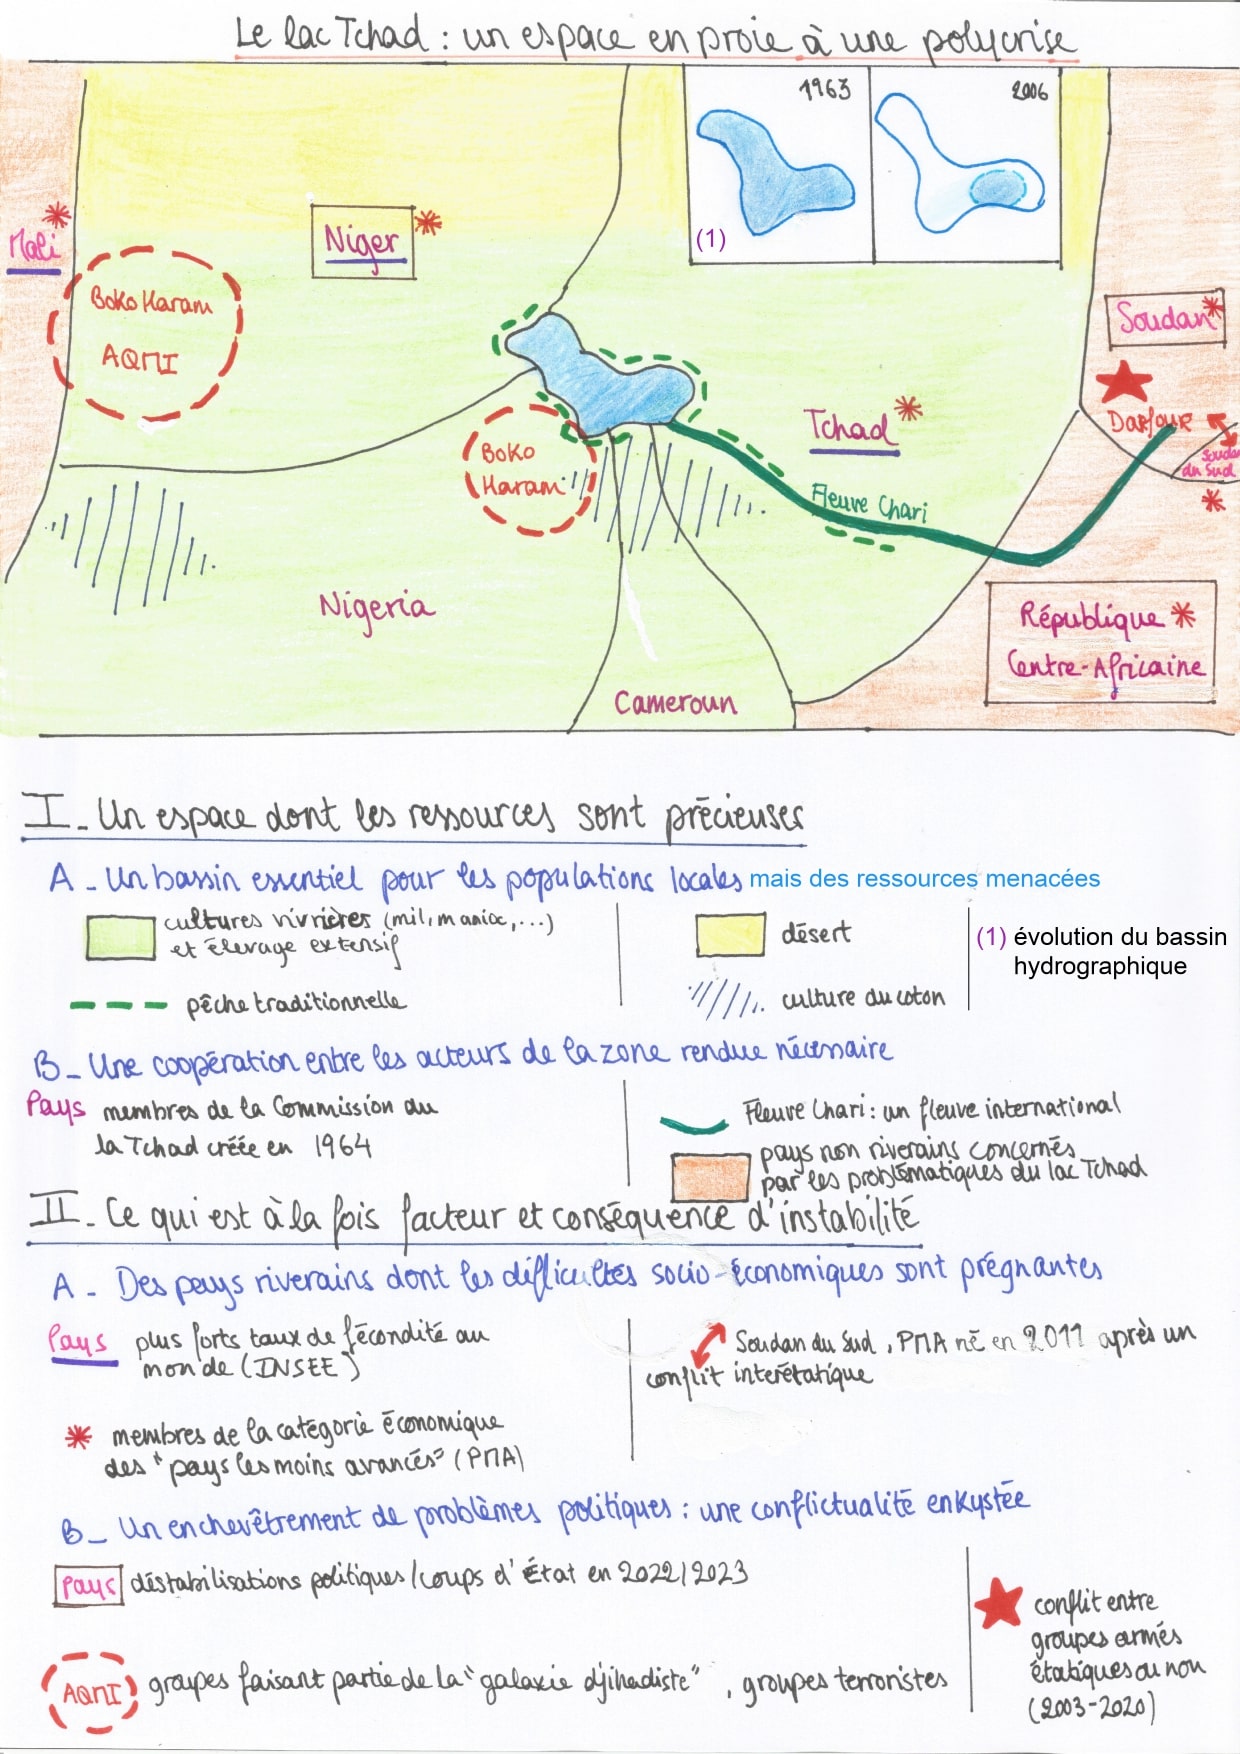 Le lac Tchad : un espace en proie à une polycrise
1963
2006
(1)
Mali
Niger
Boko Haram
AQMI
Soudan
Darfour
Soudan
du Sud
Tchad
Boko
Haram
Fleuve Chari
Nigeria
République
Centre-Africaine
Cameroun
I - Un espace dont les ressources sont précieuses
A - Un bassin essentiel pour les populations locales mais des ressources menacées
cultures vivrières (mil, manioc, ...)
et élevage extensif
désert
(1) évolution du bassin
hydrographique
pêche traditionnelle
culture du coton
B - Une coopération entre les acteurs de la zone rendue nécessaire
Pays membres de la Commission du
la Tchad créée en 1964
Fleuve Chari : un fleuve international
pays non riverains concernés
par les problématiques du lac Tchad
II - Ce qui est à la fois facteur et conséquence d'instabilité
A - Des pays riverains dont les difficultés socio-économiques sont prégnantes
Pays plus forts taux de fécondité au
monde (INSEE)
Soudan du Sud, PMA né en 2011 après un
conflit interétatique
membres de la catégorie économique
des "pays les moins avancés" (PMA)
B - Un enchevêtrement de problèmes politiques : une conflictualité enkystée
Pays déstabilisations politiques / coups d'État en 2022/2023
conflit entre
groupes armés
étatiques ou non
(2003-2020)
AQMI groupes faisant partie de la "galaxie djihadiste", groupes terroristes